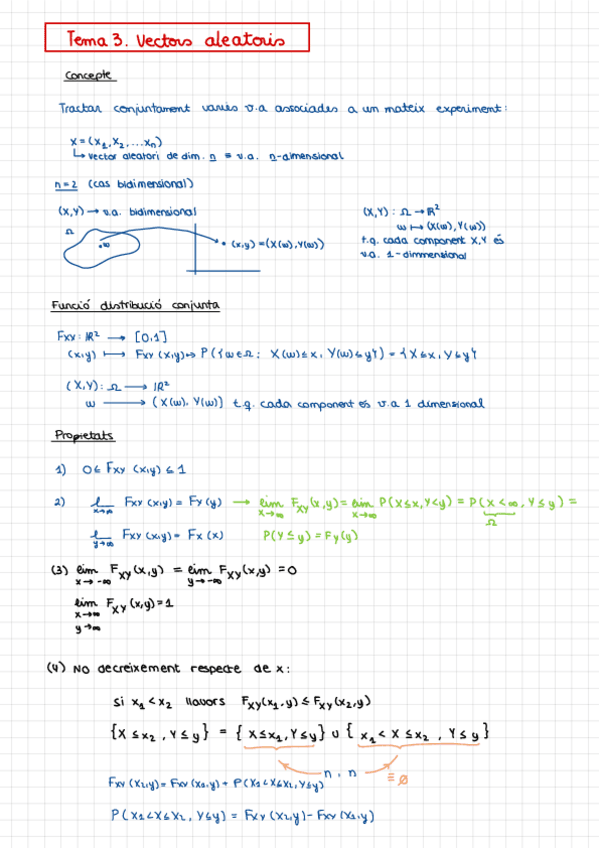 Tema 3. Vectors aleatoris
Concepte
Tractar conjuntament varies v.a associades a un mateix experiment:
X = (X₁, X₂, ... Xn)
↳ Vector aleatori de dim. n ≡ v.a. n-dimensional
n=2 (cas bidimensional)
(X,Y) → v.a. bidimensional
Ω
•ω
• (x,y) = (X(ω), Y(ω))
(X,Y) : Ω → ℝ²
ω ↦ (X(ω), Y(ω))
t.q. cada component X,Y és
v.a. 1-dimmensional
Funció distribució conjunta
Fxy : ℝ² → [0,1]
(x,y) ⟼ Fxy (x,y) ↦ P({ω∈Ω : X(ω) ≤ x, Y(ω) ≤ y}) = {X ≤ x, Y ≤ y}
(X,Y) : Ω → ℝ²
ω → (X(ω), Y(ω)) t.q. cada component és v.a 1 dimensional
Propietats
1) 0 ≤ Fxy (x,y) ≤ 1
2) lim x→∞ Fxy (x,y) = Fy (y) → lim x→∞ F_XY (x,y) = lim x→∞ P(X≤x, Y<y) = P(X<∞, Y≤y) =
Ω
lim y→∞ Fxy (x,y) = Fx (x) P(Y≤y) = Fy(y)
(3) lim x→-∞ F_XY (x,y) = lim y→-∞ F_XY (x,y) = 0
lim x→∞ y→∞ F_XY (x,y) = 1
(4) No decreixement respecte de x:
si x₁ < x₂ llavors F_XY(x₁,y) ≤ F_XY (x₂,y)
{X ≤ x₂, Y ≤ y} = {X ≤ x₁, Y ≤ y} ∪ {x₁ < X ≤ x₂, Y ≤ y}
n , n ≡ ∅
Fxy (x₂,y) = Fxy (x₁,y) + P(x₁<X≤x₂, Y≤y)
P(x₁<X≤x₂, Y≤y) = Fxy (x₂,y) - Fxy (x₁,y)